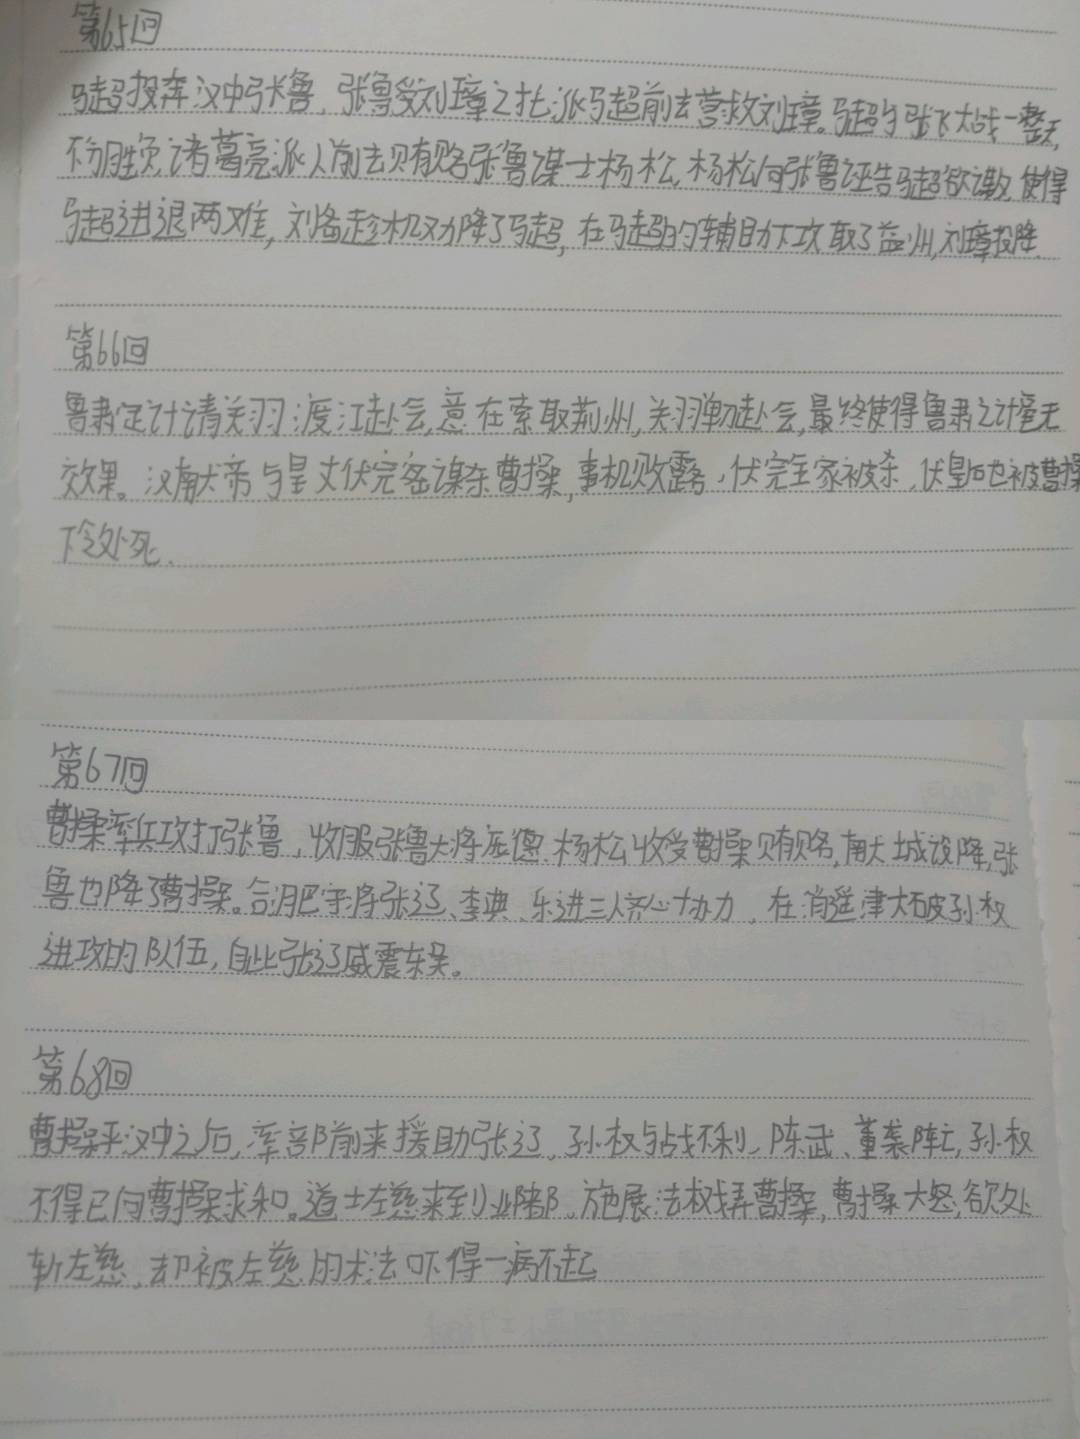 第65回
马超投奔汉中张鲁，张鲁受刘璋之托派马超前去营救刘璋。马超与张飞大战一整天，
不分胜负，诸葛亮派人前去贿赂张鲁谋士杨松，杨松向张鲁诬告马超欲谋反，使得
马超进退两难，刘备趁机劝降了马超，在马超的辅助下攻取了益州，刘璋投降。
第66回
鲁肃定计请关羽渡江赴会，意在索取荆州，关羽单刀赴会，最终使得鲁肃之计毫无
效果。汉献帝与皇丈伏完密谋杀曹操，事机败露，伏完全家被杀，伏皇后也被曹操
下令处死。
第67回
曹操率兵攻打张鲁，收服张鲁大将庞德。杨松收受曹操贿赂，献城投降，张
鲁也降了曹操。合肥守将张辽、李典、乐进三人齐心协力，在逍遥津大破孙权
进攻的队伍，自此张辽威震东吴。
第68回
曹操平汉中之后，率部前来援助张辽，孙权与战不利，陈武、董袭阵亡，孙权
不得已向曹操求和。道士左慈来到邺郡，施展法术戏弄曹操，曹操大怒，欲处
斩左慈，却被左慈的术法吓得一病不起